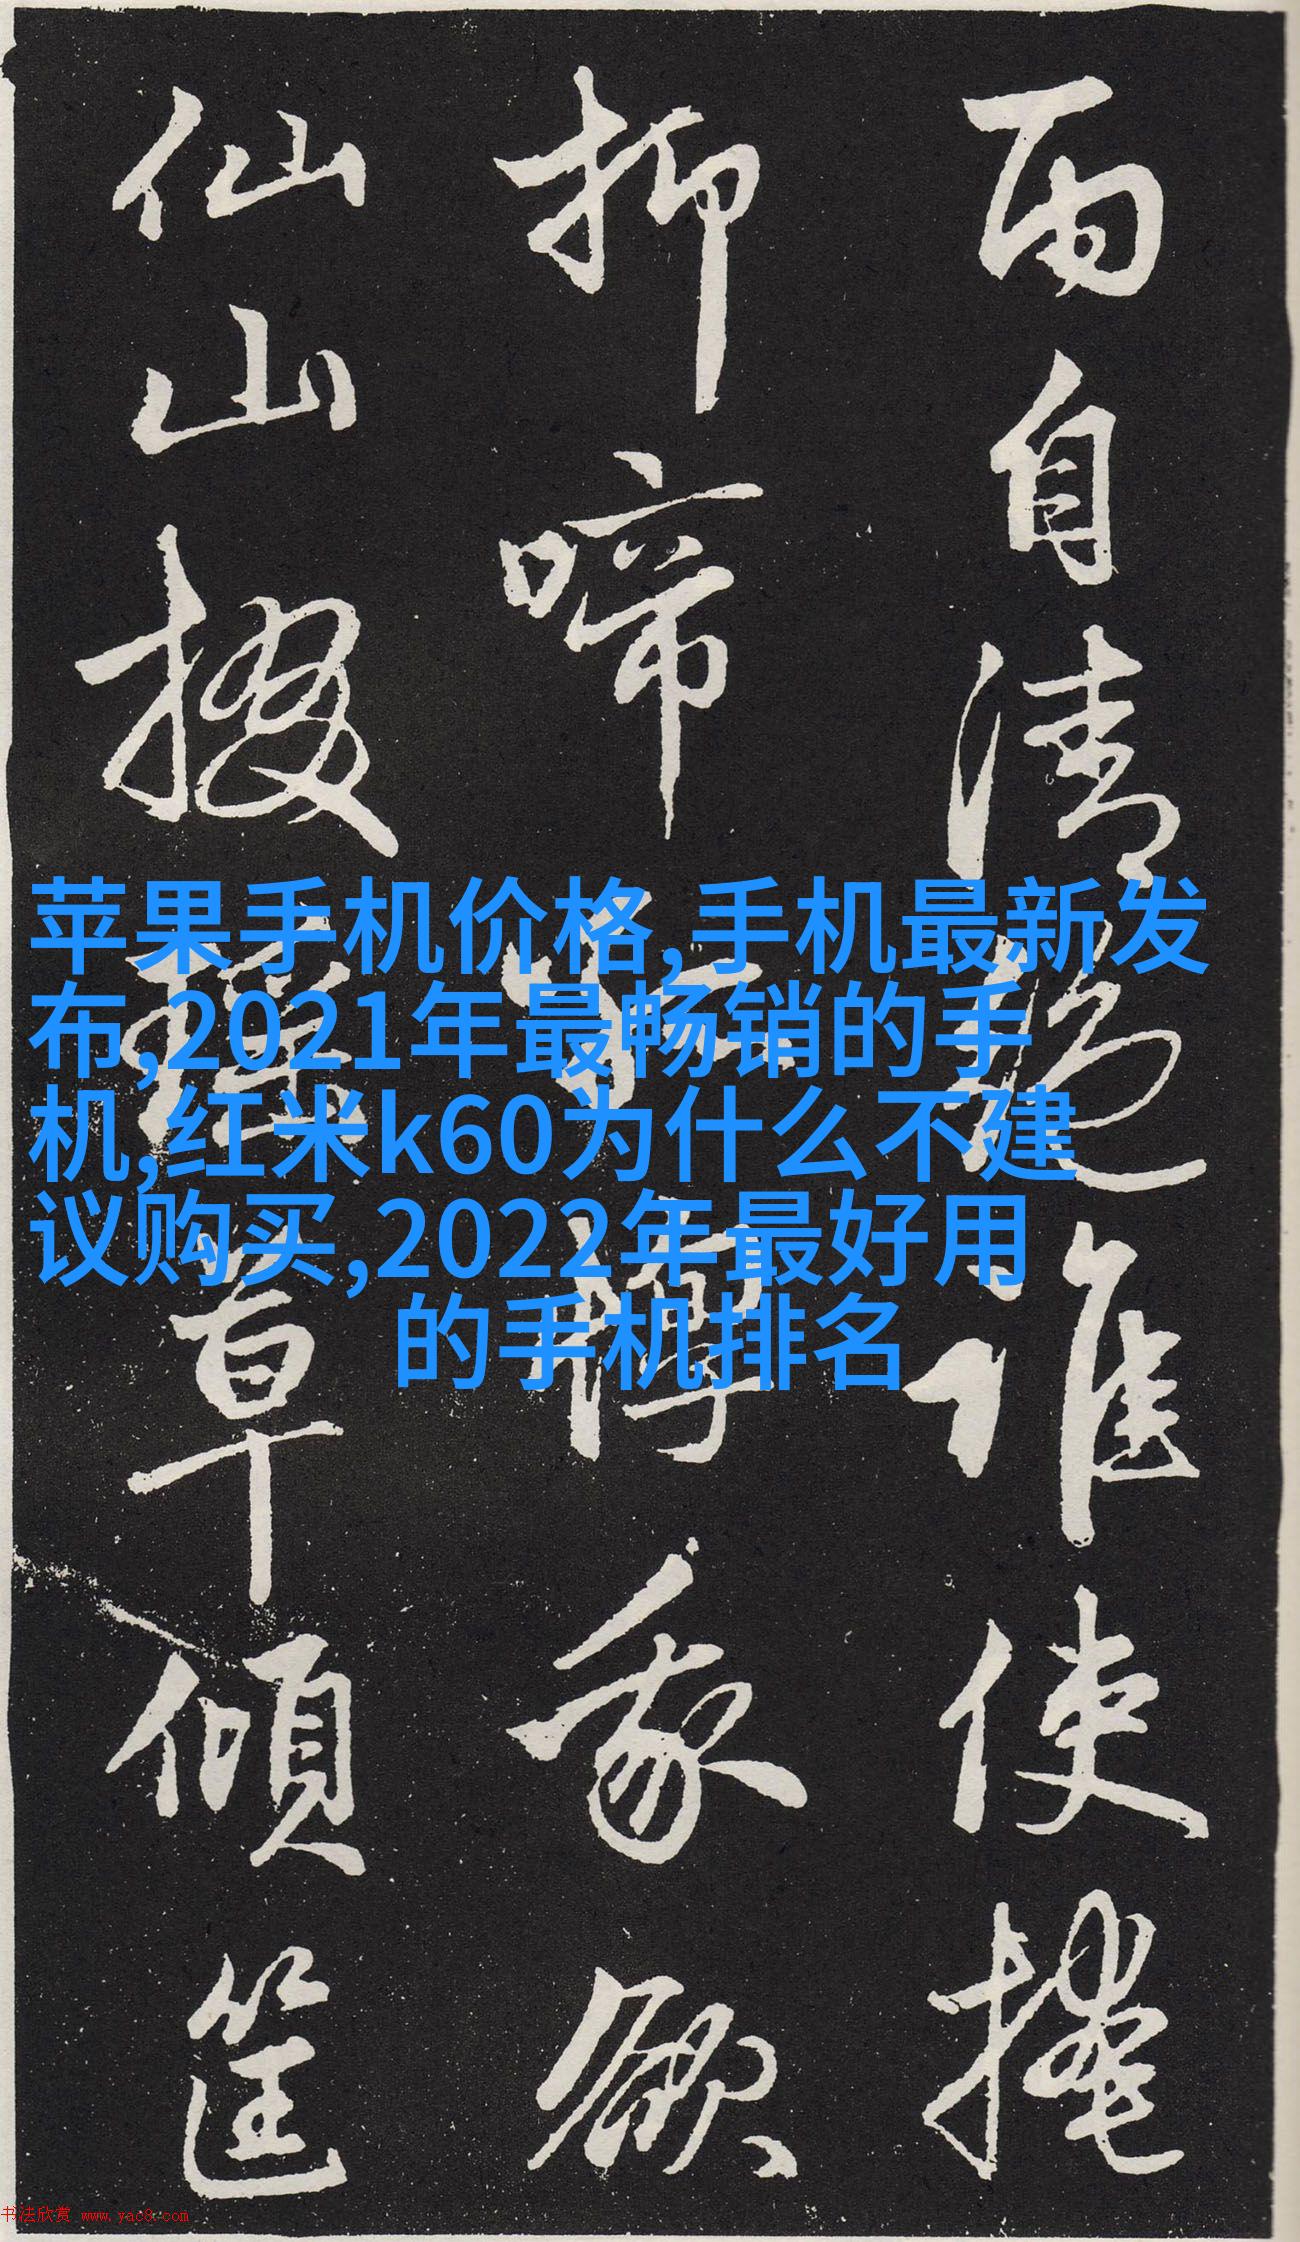 而自清誰使掩
抑啼
仙山掇瑤草傾筐
苹果手机价格,手机最新发
布,2021年最畅销的手
机,红米k60为什么不建
议购买,2022年最好用
的手机排名
书法欣赏 www.yac8.com